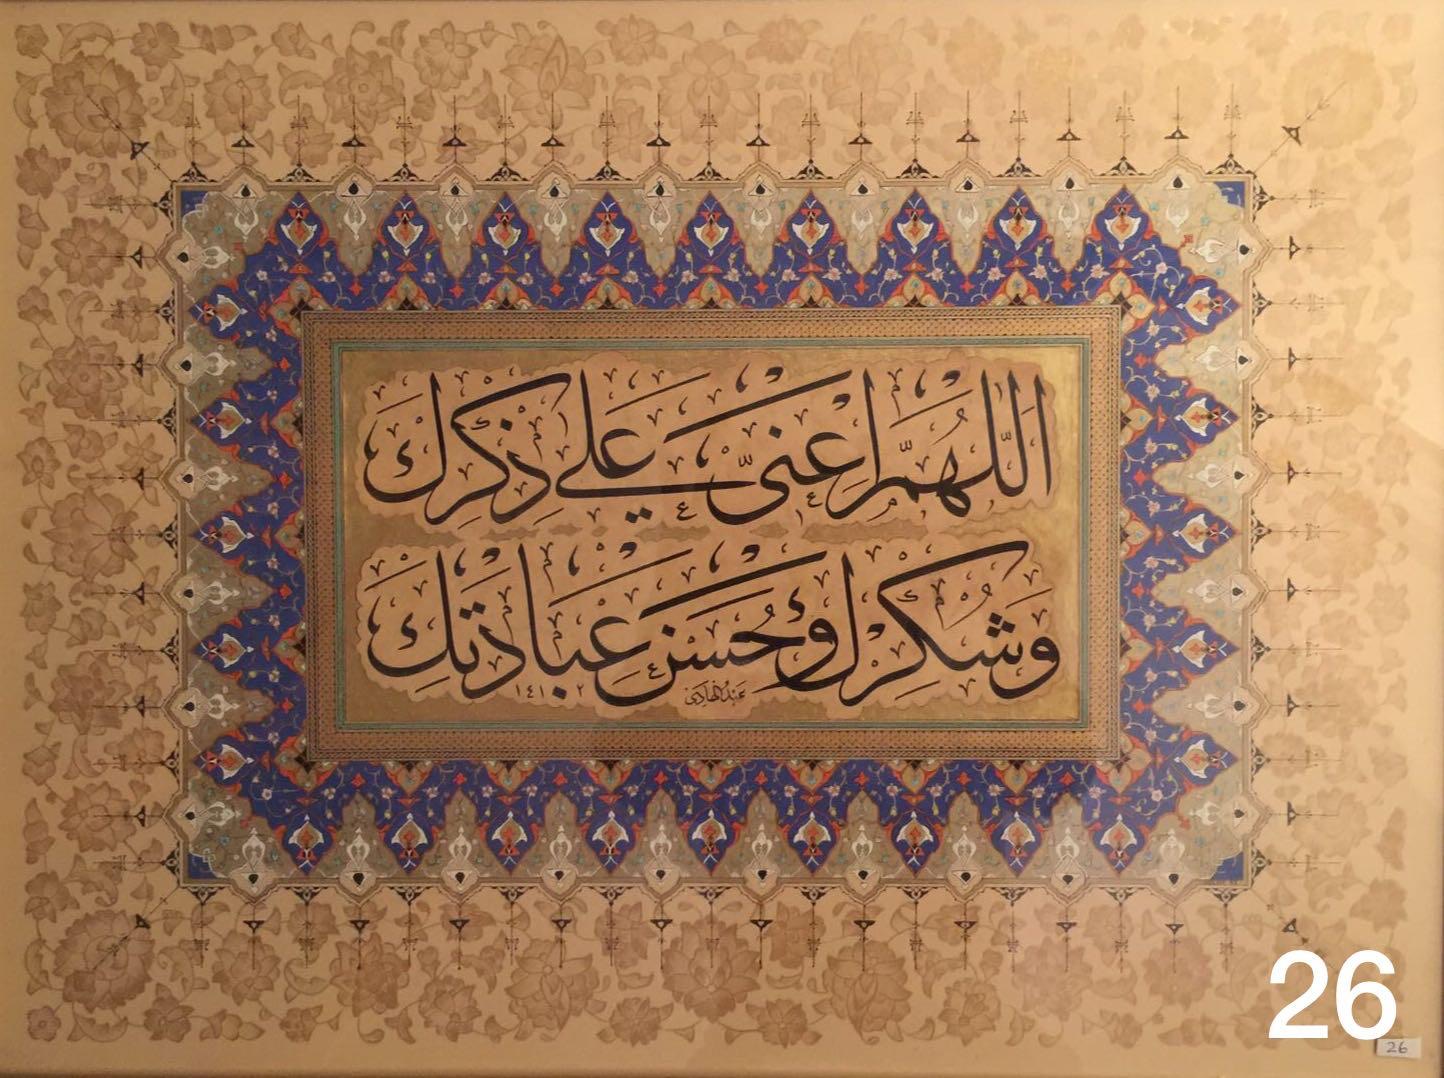 اللهم اعني على ذكرك
وشكرك وحسن عبادتك
عبدالهادي ١٤١٠٢
26
26